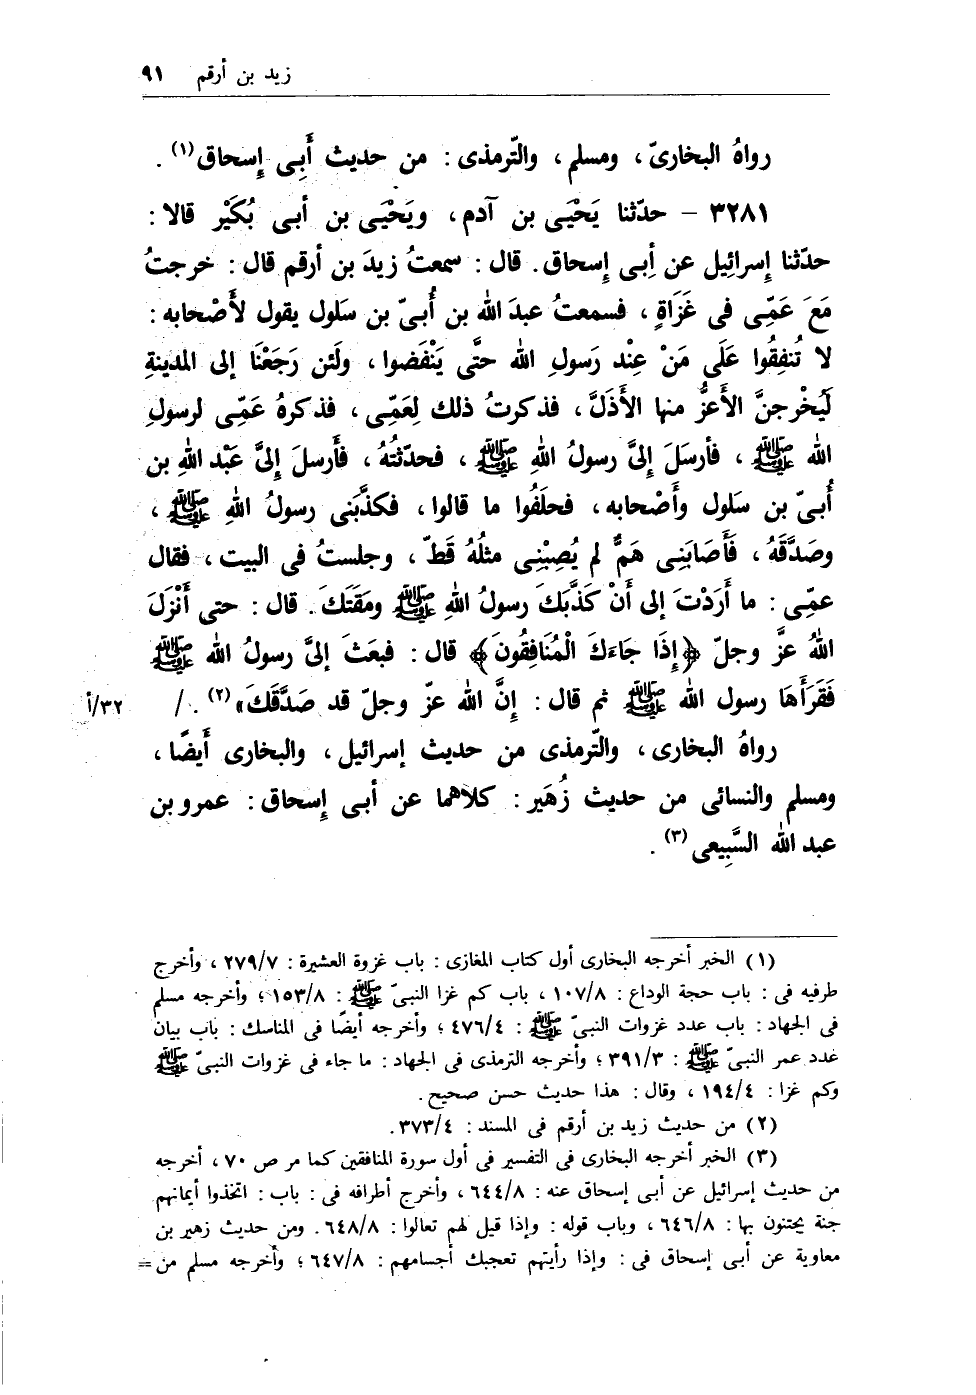 زيد بن أرقم ٩١
رواهُ البخارىّ ، ومسلم ، والتّرمذى : من حديث أَبِى إِسحاق(١) .
٣٢٨١ – حدّثنا يَحْيَى بن آدم ، ويَحْيَى بن أبى بُكَيْر قالا :
حدّثنا إِسرائِيل عن أَبِى إِسحاق . قال : سمعتُ زيدَ بن أرقم قال : خرجتُ
مَعَ عَمِّى فى غَزَاةٍ ، فسمعتُ عبدَ الله بن أُبىّ بن سَلول يقول لأَصْحابه :
لا تُنفِقُوا عَلَى مَنْ عِنْد رَسولِ الله حتَّى يَنْفَضوا ، ولَئن رَجَعْنَا إلى المدينةِ
لَيُخْرجنَّ الأَعزُّ منها الأَذَلَّ ، فذكرتُ ذلك لِعَمِّى ، فذكرهُ عَمِّى لرسولِ
الله ﷺ ، فأرسَلَ إِلىَّ رسولُ اللهِ ﷺ ، فحدّثتُهُ ، فأَرسلَ إِلىَّ عَبْد اللهِ بن
أُبىّ بن سَلول وأَصْحابه ، فحلَفُوا ما قالوا ، فكذَّبَنى رسولُ اللهِ ﷺ ،
وصَدَّقَهُ ، فَأَصَابَنِى هَمٌّ لم يُصِبْنِى مثلُهُ قَطّ ، وجلستُ فى البيت ، فقال
عمِّى : ما أَرَدْتَ إلى أَنْ كَذَّبَكَ رسولُ اللهِ ﷺ ومَقَتَكَ . قال : حتى أَنْزَلَ
اللهُ عزَّ وجلّ ﴿إِذَا جَاءَكَ الْمُنَافِقُونَ﴾ قال : فبعَثَ إلىَّ رسولُ الله ﷺ
فَقَرَأَهَا رسول الله ﷺ ثم قال : إِنَّ الله عزّ وجلّ قد صَدَّقَكَ»(٢) . / ٣٢/أ
رواهُ البخارى ، والتّرمذى من حديث إسرائيل ، والبخارى أَيضًا ،
ومسلم والنسائى من حديث زُهَير : كلاهما عن أبى إِسحاق : عمرو بن
عبد الله السَّبِيعى(٣) .
(١) الخبر أخرجه البخارى أول كتاب المغازى : باب غزوة العشيرة : ٢٧٩/٧ ، وأخرج
طرفيه فى : باب حجة الوداع : ١٠٧/٨ ، باب كم غزا النبىّ ﷺ : ١٥٣/٨ ؛ وأخرجه مسلم
فى الجهاد : باب عدد غزوات النبىّ ﷺ : ٤٧٦/٤ ؛ وأخرجه أيضًا فى المناسك : باب بيان
عدد عمر النبىّ ﷺ : ٣٩١/٣ ؛ وأخرجه الترمذى فى الجهاد : ما جاء فى غزوات النبىّ ﷺ
وكم غزا : ١٩٤/٤ ، وقال : هذا حديث حسن صحيح .
(٢) من حديث زيد بن أرقم فى المسند : ٣٧٣/٤ .
(٣) الخبر أخرجه البخارى فى التفسير فى أول سورة المنافقين كما مر ص ٧٠ ، أخرجه
من حديث إسرائيل عن أبى إسحاق عنه : ٦٤٤/٨ ، وأخرج أطرافه فى : باب : اتخذوا أيمانهم
جنة يجتنون بها : ٦٤٦/٨ ، وباب قوله : وإذا قيل لهم تعالوا : ٦٤٨/٨ . ومن حديث زهير بن
معاوية عن أبى إسحاق فى : وإذا رأيتهم تعجبك أجسامهم : ٦٤٧/٨ ؛ وأخرجه مسلم من =